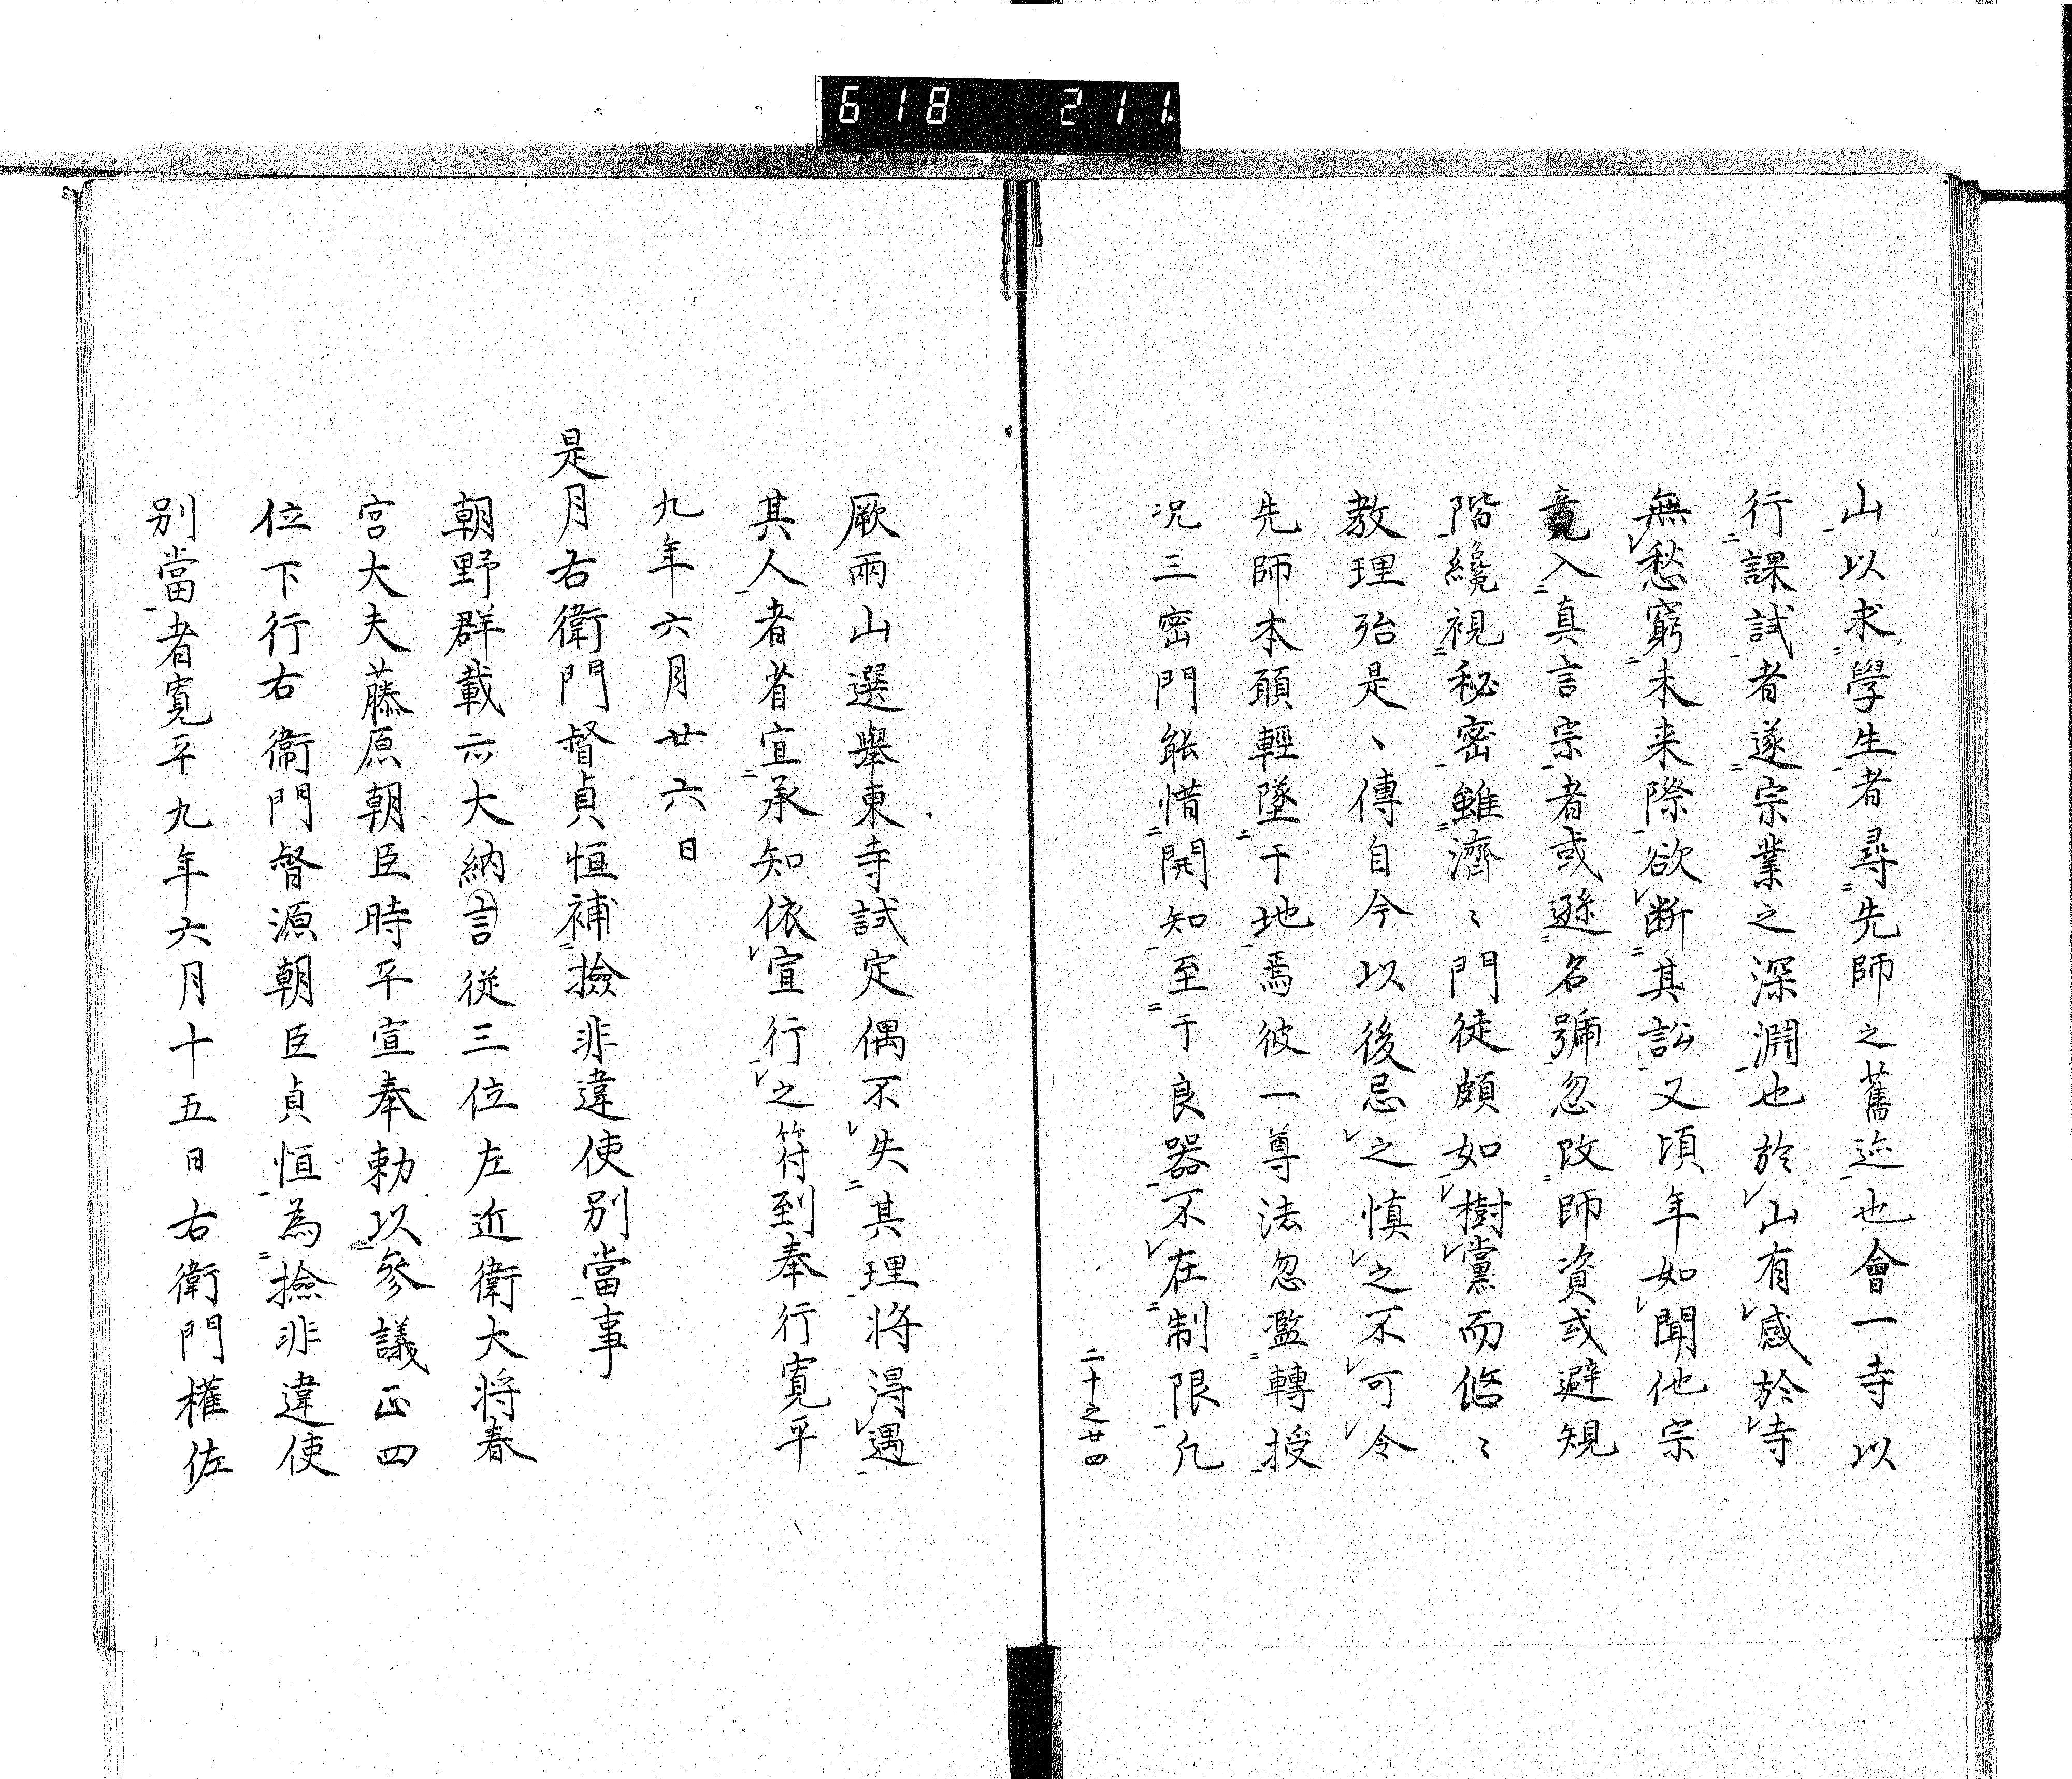 618 211
山以求學生者尋先師之舊迹也會一寺以
行課試者遂宗業之深淵也於山有感於寺
無愁窮未来際欲断其訟又頃年如聞他宗
竟入真言宗者或遜名號忽改師資或避規
階纔視秘密雖濟〻門徒頗如樹黨而悠〻
教理殆是、傳自今以後忌之慎之不可令
先師本願輕墜于地焉彼一尊法忽濫轉授
况三密門能惜開知至于良器不在制限凡
二十之廿四
厥兩山選舉東寺試定偶不失其理将得遇
其人者省宜承知依宣行之符到奉行寛平
九年六月廿六日
是月右衛門督貞恒補撿非違使別當事
朝野群載云大納言従三位左近衛大将春
宮大夫藤原朝臣時平宣奉勅以參議正四
位下行右衛門督源朝臣貞恒為撿非違使
別當者寛平九年六月十五日右衛門権佐